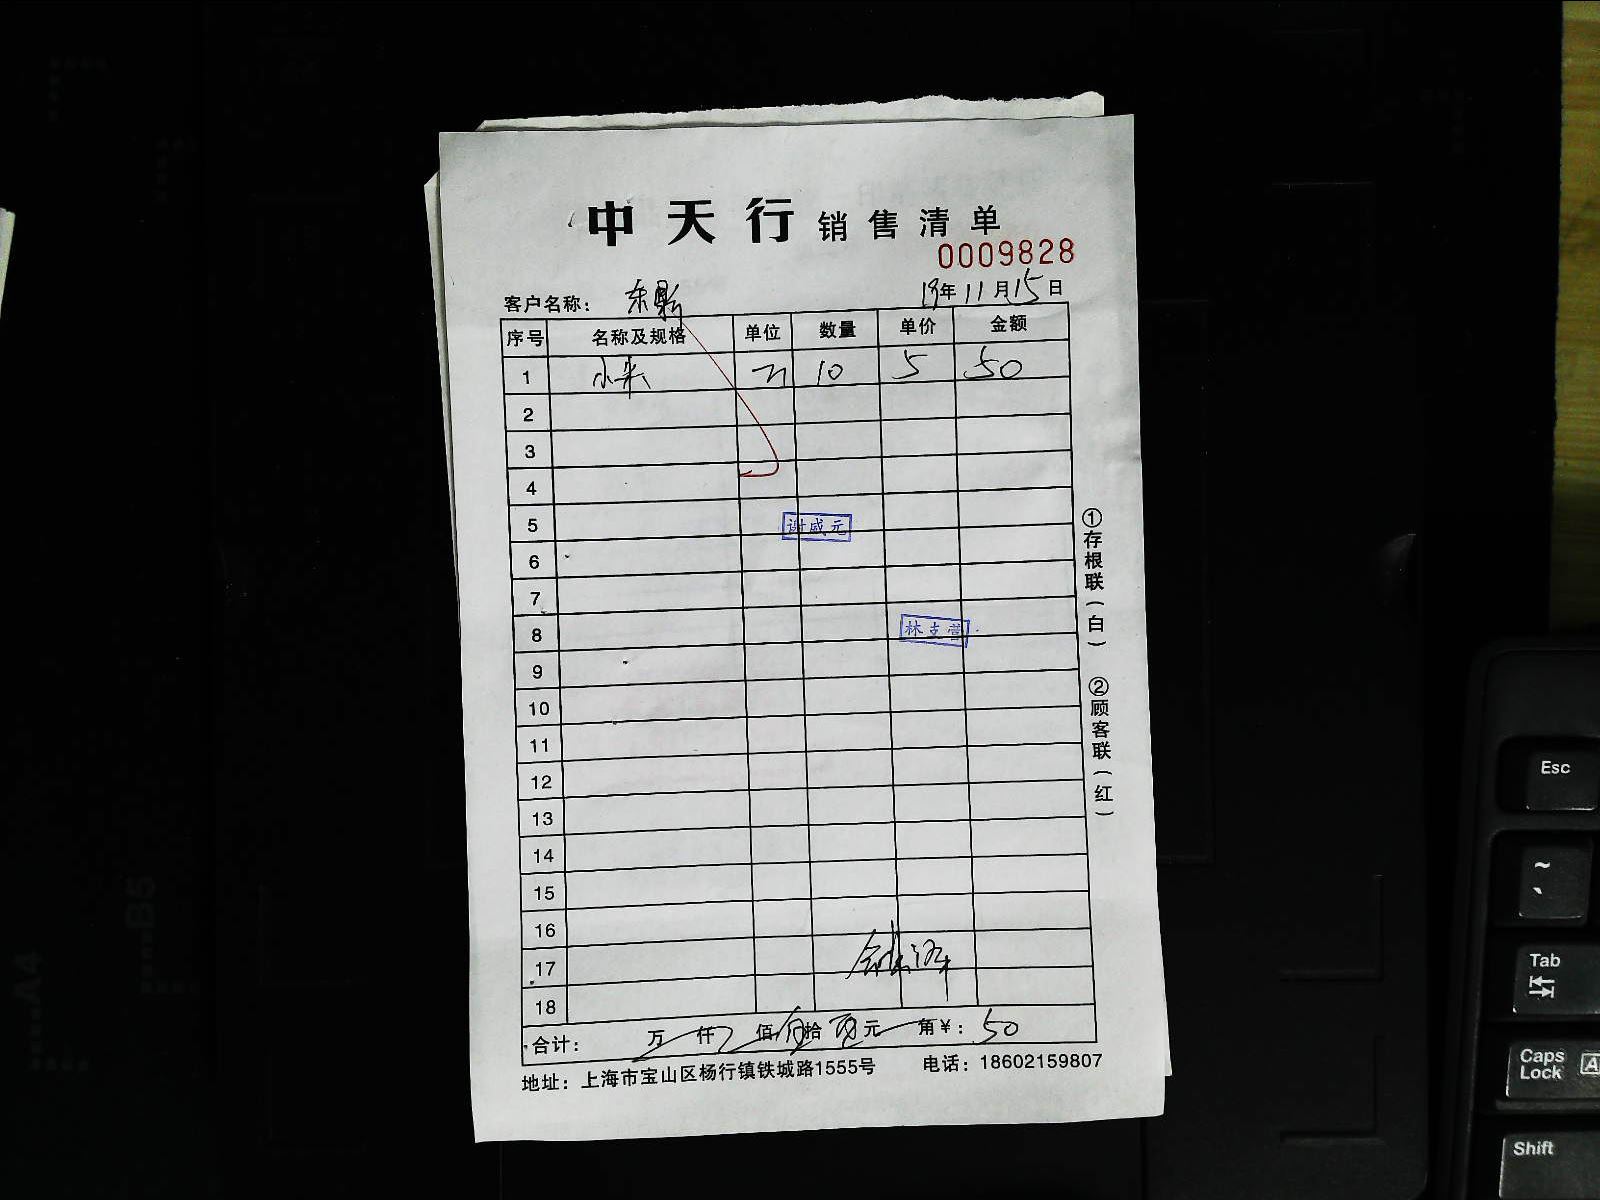 中天行销售清单
0009828
客户名称： 东影 19年11月15日
序号 名称及规格 单位 数量 单价 金额
1 小米 斤 10 5 50
2
3
4
5
谢威元
6
7
8
林支营
9
10
11
12
13
14
15
16
17
18
合计： 万 仟 佰 拾 元 角 ¥：50
地址：上海市宝山区杨行镇铁城路1555号 电话：18602159807
①存根联（白） ②顾客联（红）
B5
A4
Esc
~
Tab
Caps Lock
A
Shift